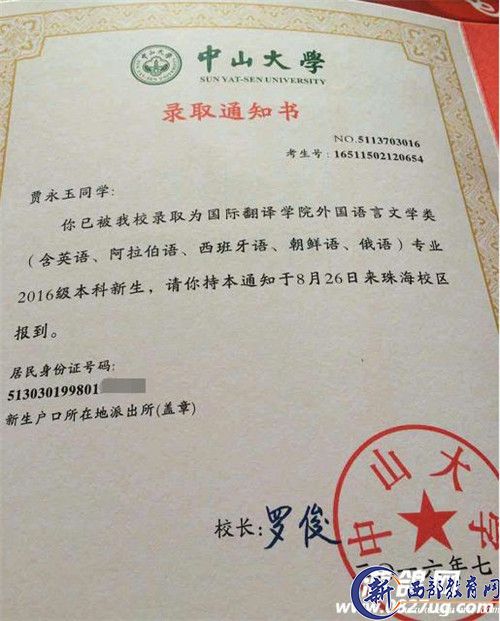 中山大學
SUN YAT-SEN UNIVERSITY
录取通知书
NO.5113703016
考生号:16511502120654
贾永玉同学:
你已被我校录取为国际翻译学院外国语言文学类
(含英语、阿拉伯语、西班牙语、朝鲜语、俄语)专业
2016级本科新生,请你持本通知于8月26日来珠海校区
报到。
居民身份证号码:
513030199801
新生户口所在地派出所(盖章)
校长:罗俊
中山大学
六年七
新 西部教育网